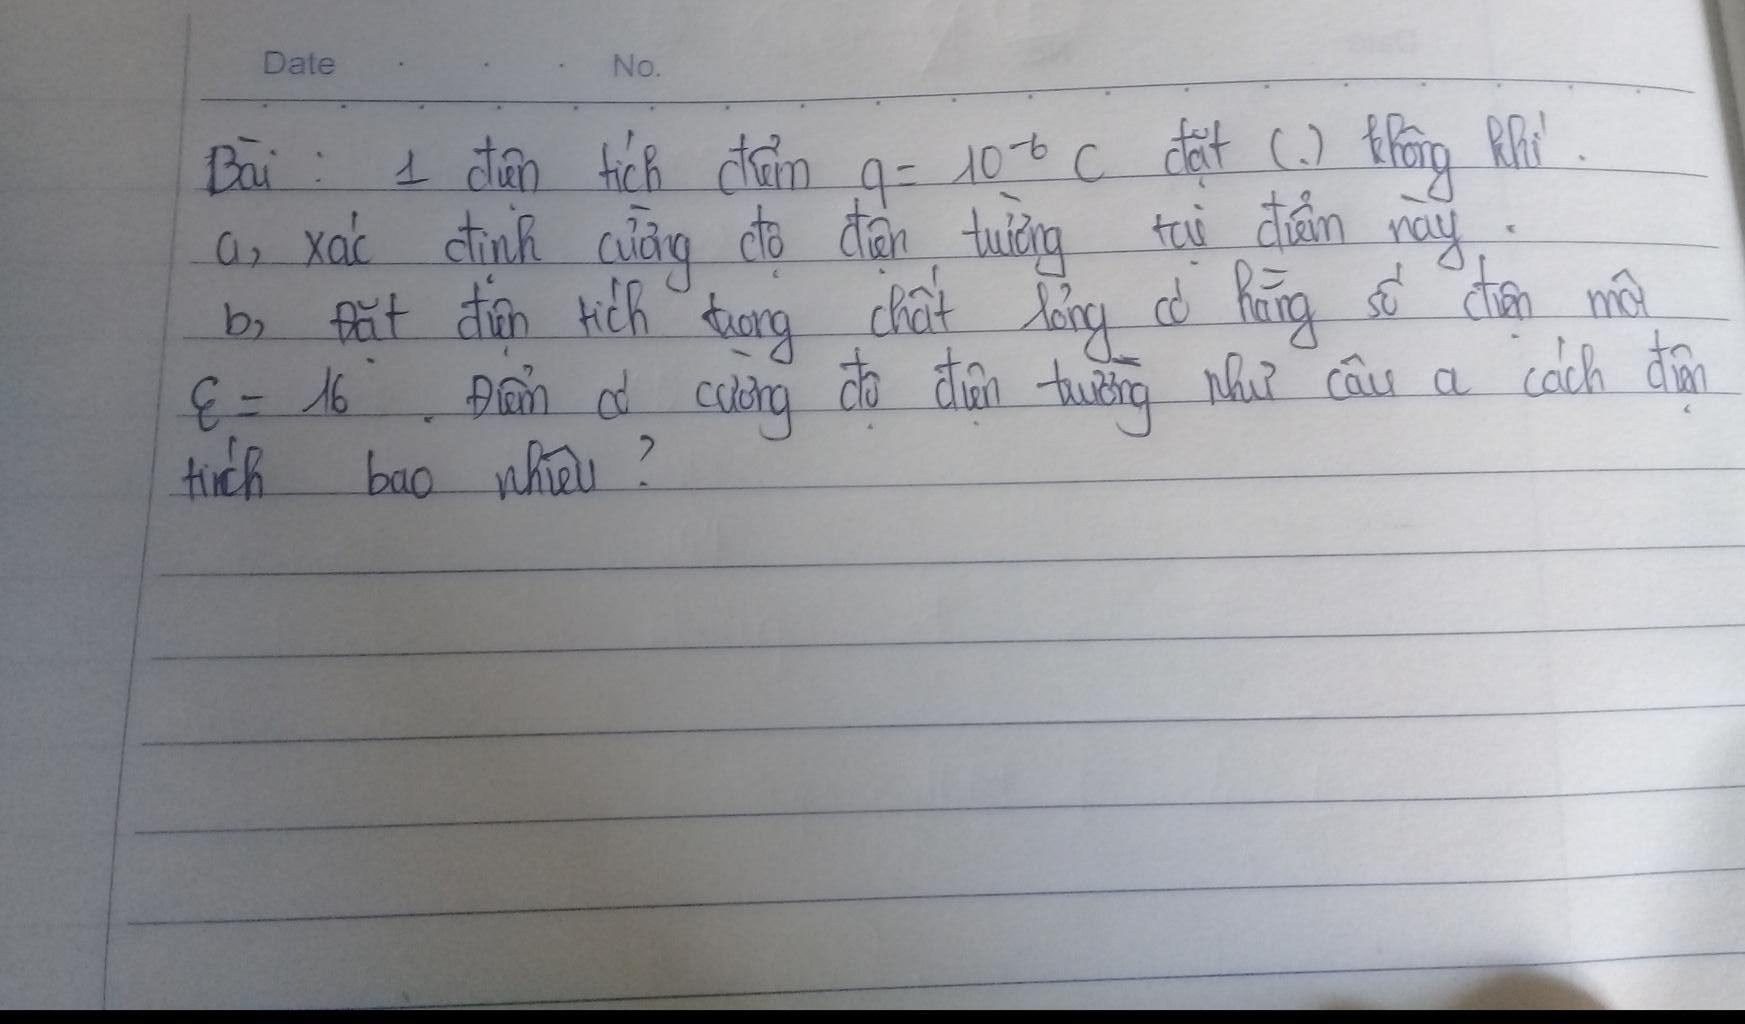 Date . . . No.
Bài : 1 điện tích điểm q = 10⁻⁶ C đặt (.) không khí.
a, xác định cường độ điện trường tại điểm này.
b, Đặt điện tích trong chất lỏng có hằng số điện môi
ε = 16 . Điểm có cường độ điện trường như câu a cách điện
tích bao nhiêu?